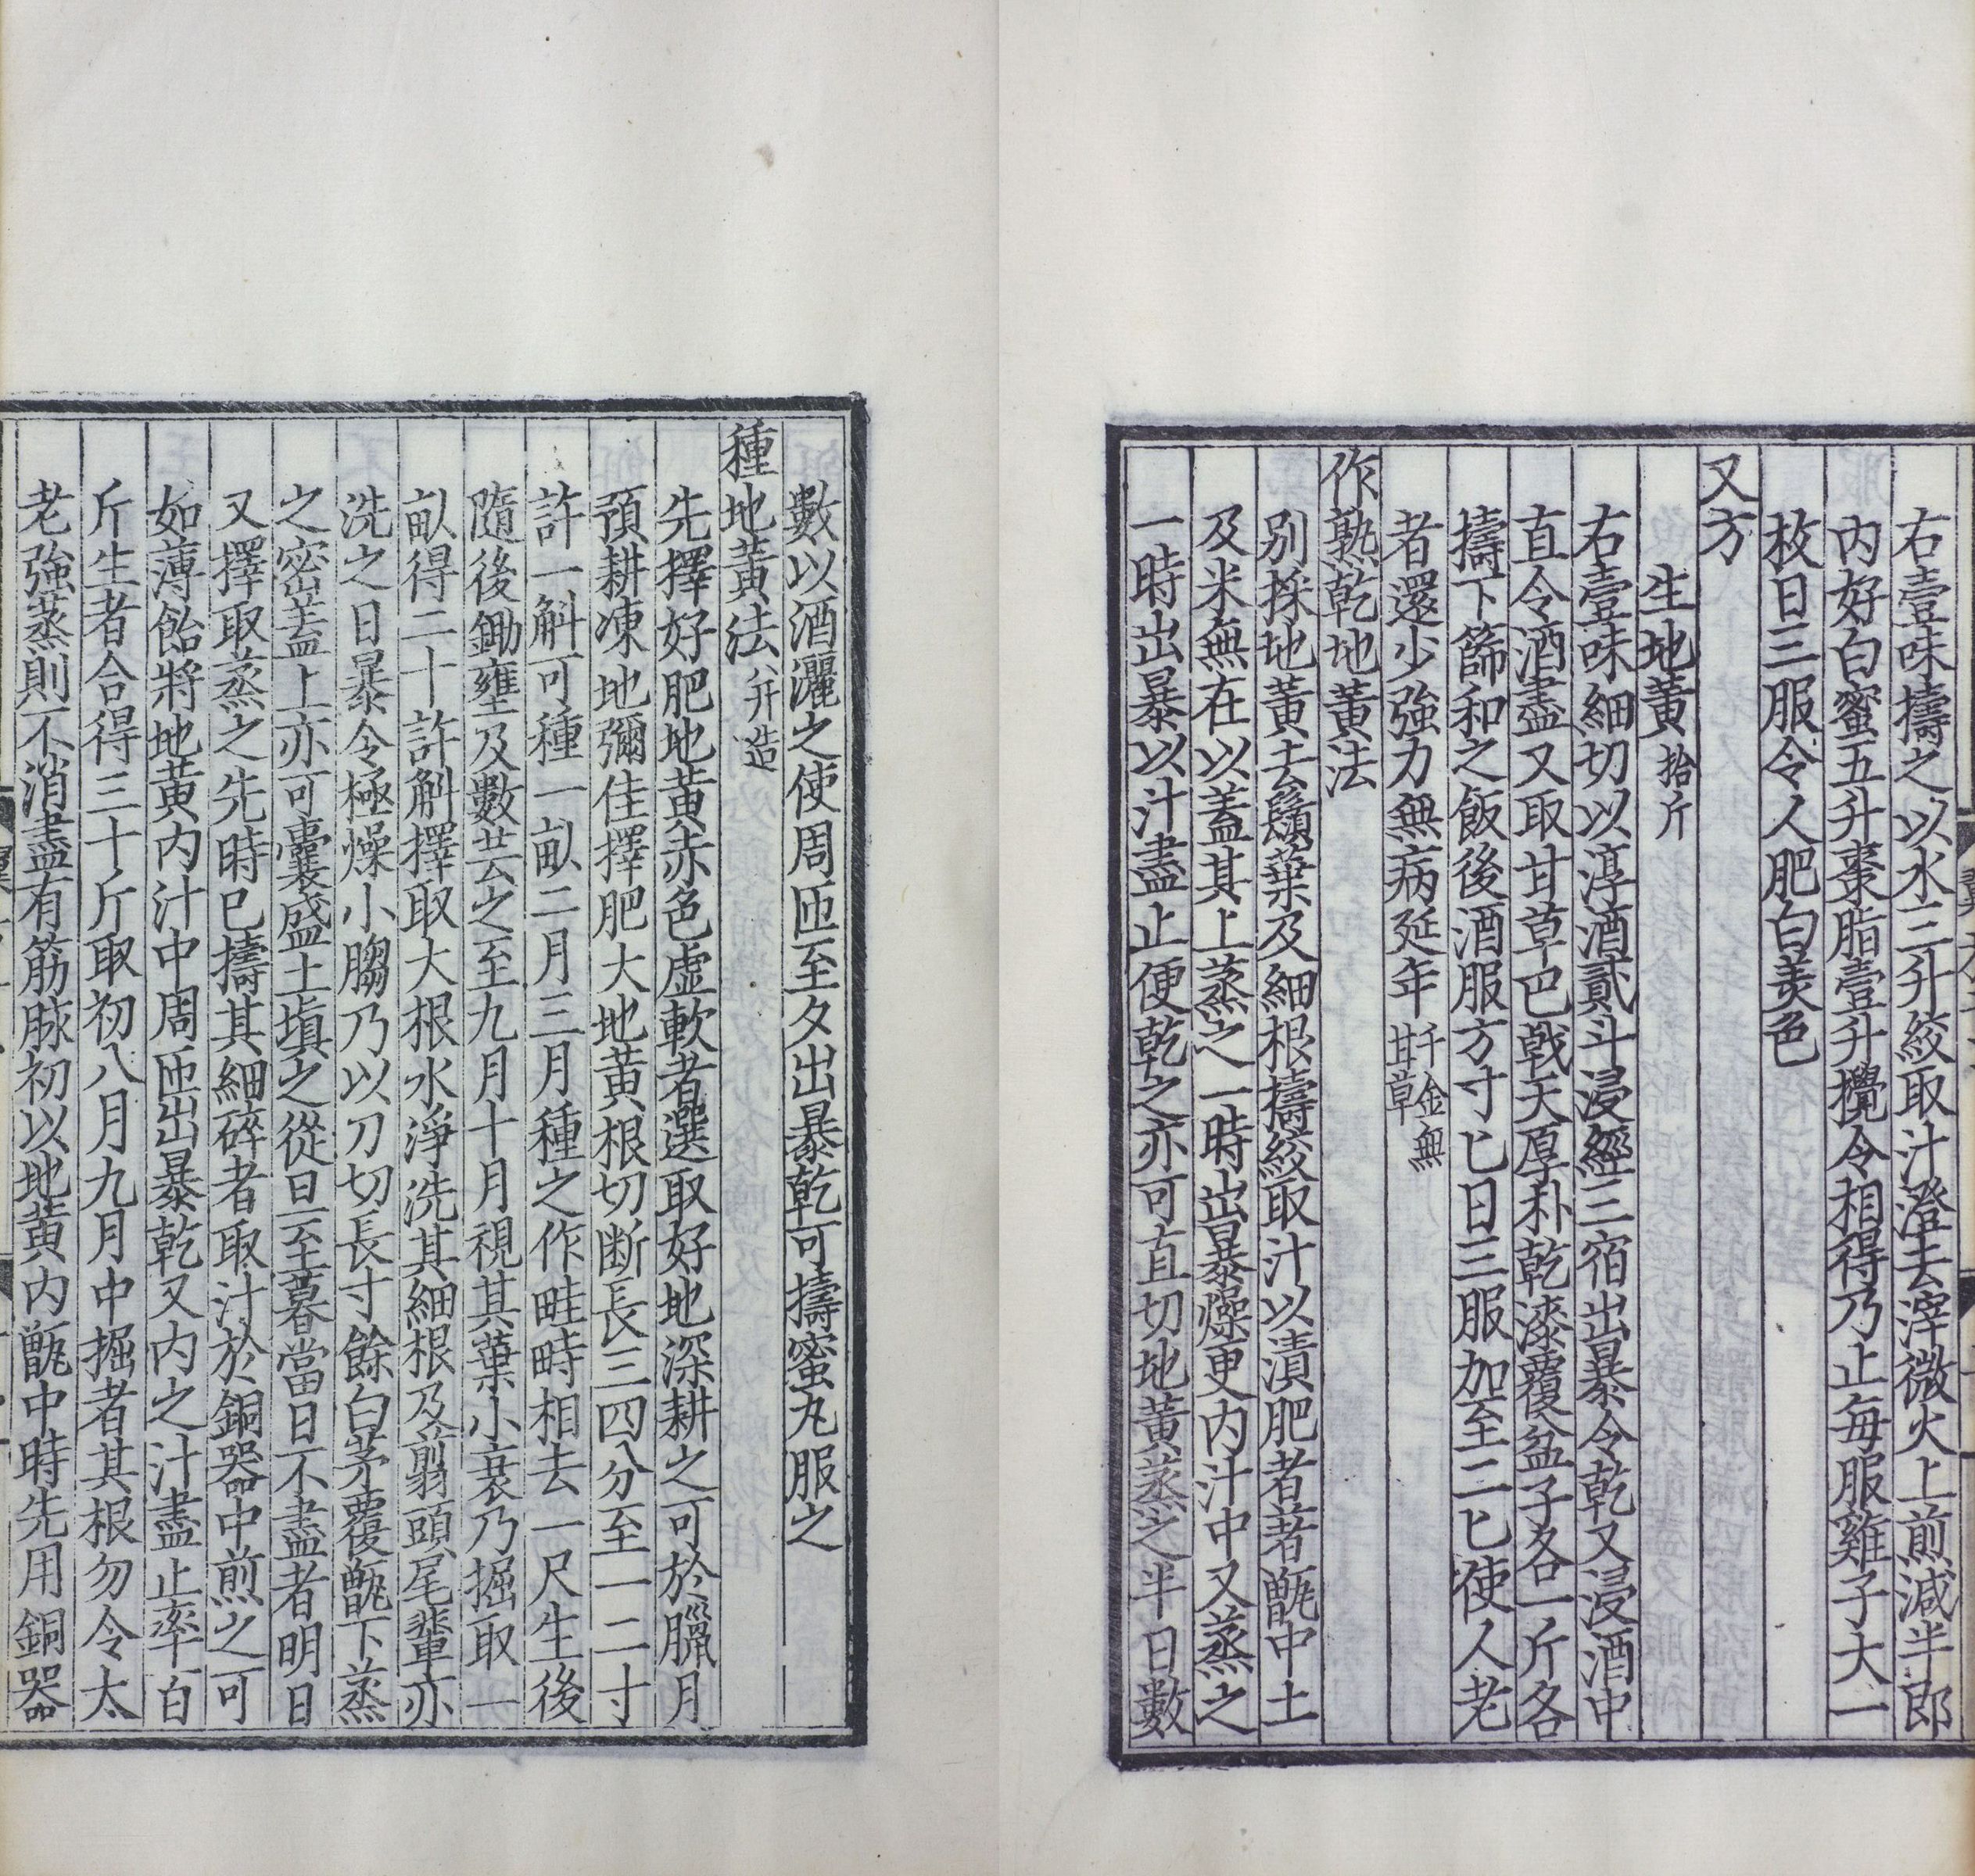 右壹味擣之以水三升絞取汁澄去滓微火上煎減半郎
內好白蜜五升棗脂壹升攪令相得乃止每服雞子大一
枚日三服令人肥白美色
又方
生地黃拾斤
右壹味細切以淳酒貳斗浸經三宿出暴令乾又浸酒中
直令酒盡又取甘草巴戟天厚朴乾漆覆盆子各一斤各
擣下篩和之飯後酒服方寸匕日三服加至二匕使人老
者還少強力無病延年千金無甘草
作熟乾地黃法
別採地黃去鬚葉及細根擣絞取汁以漬肥者著甑中土
及米無在以蓋其上蒸之一時出暴燥更內汁中又蒸之
一時出暴以汁盡止便乾之亦可直切地黃蒸之半日數
數以酒灑之使周匝至夕出暴乾可擣蜜丸服之
種地黃法并造
先擇好肥地黃赤色虛軟者選取好地深耕之可於臘月
預耕凍地彌佳擇肥大地黃根切断長三四分至一二寸
許一斛可種一畝二月三月種之作畦畤相去一尺生後
隨後鋤壅及數芸之至九月十月視其葉小衰乃掘取一
畝得二十許斛擇取大根水淨洗其細根及翦頭尾輩亦
洗之日暴令極燥小𦠆乃以刀切長寸餘白茅覆甑下蒸
之密蓋上亦可囊盛土填之從旦至暮當日不盡者明日
又擇取蒸之先時已擣其細碎者取汁於銅器中煎之可
如薄飴將地黃內汁中周匝出暴乾又內之汁盡止率百
斤生者合得三十斤取初八月九月中掘者其根勿令太
老強蒸則不消盡有筋脉初以地黃內甑中時先用銅器